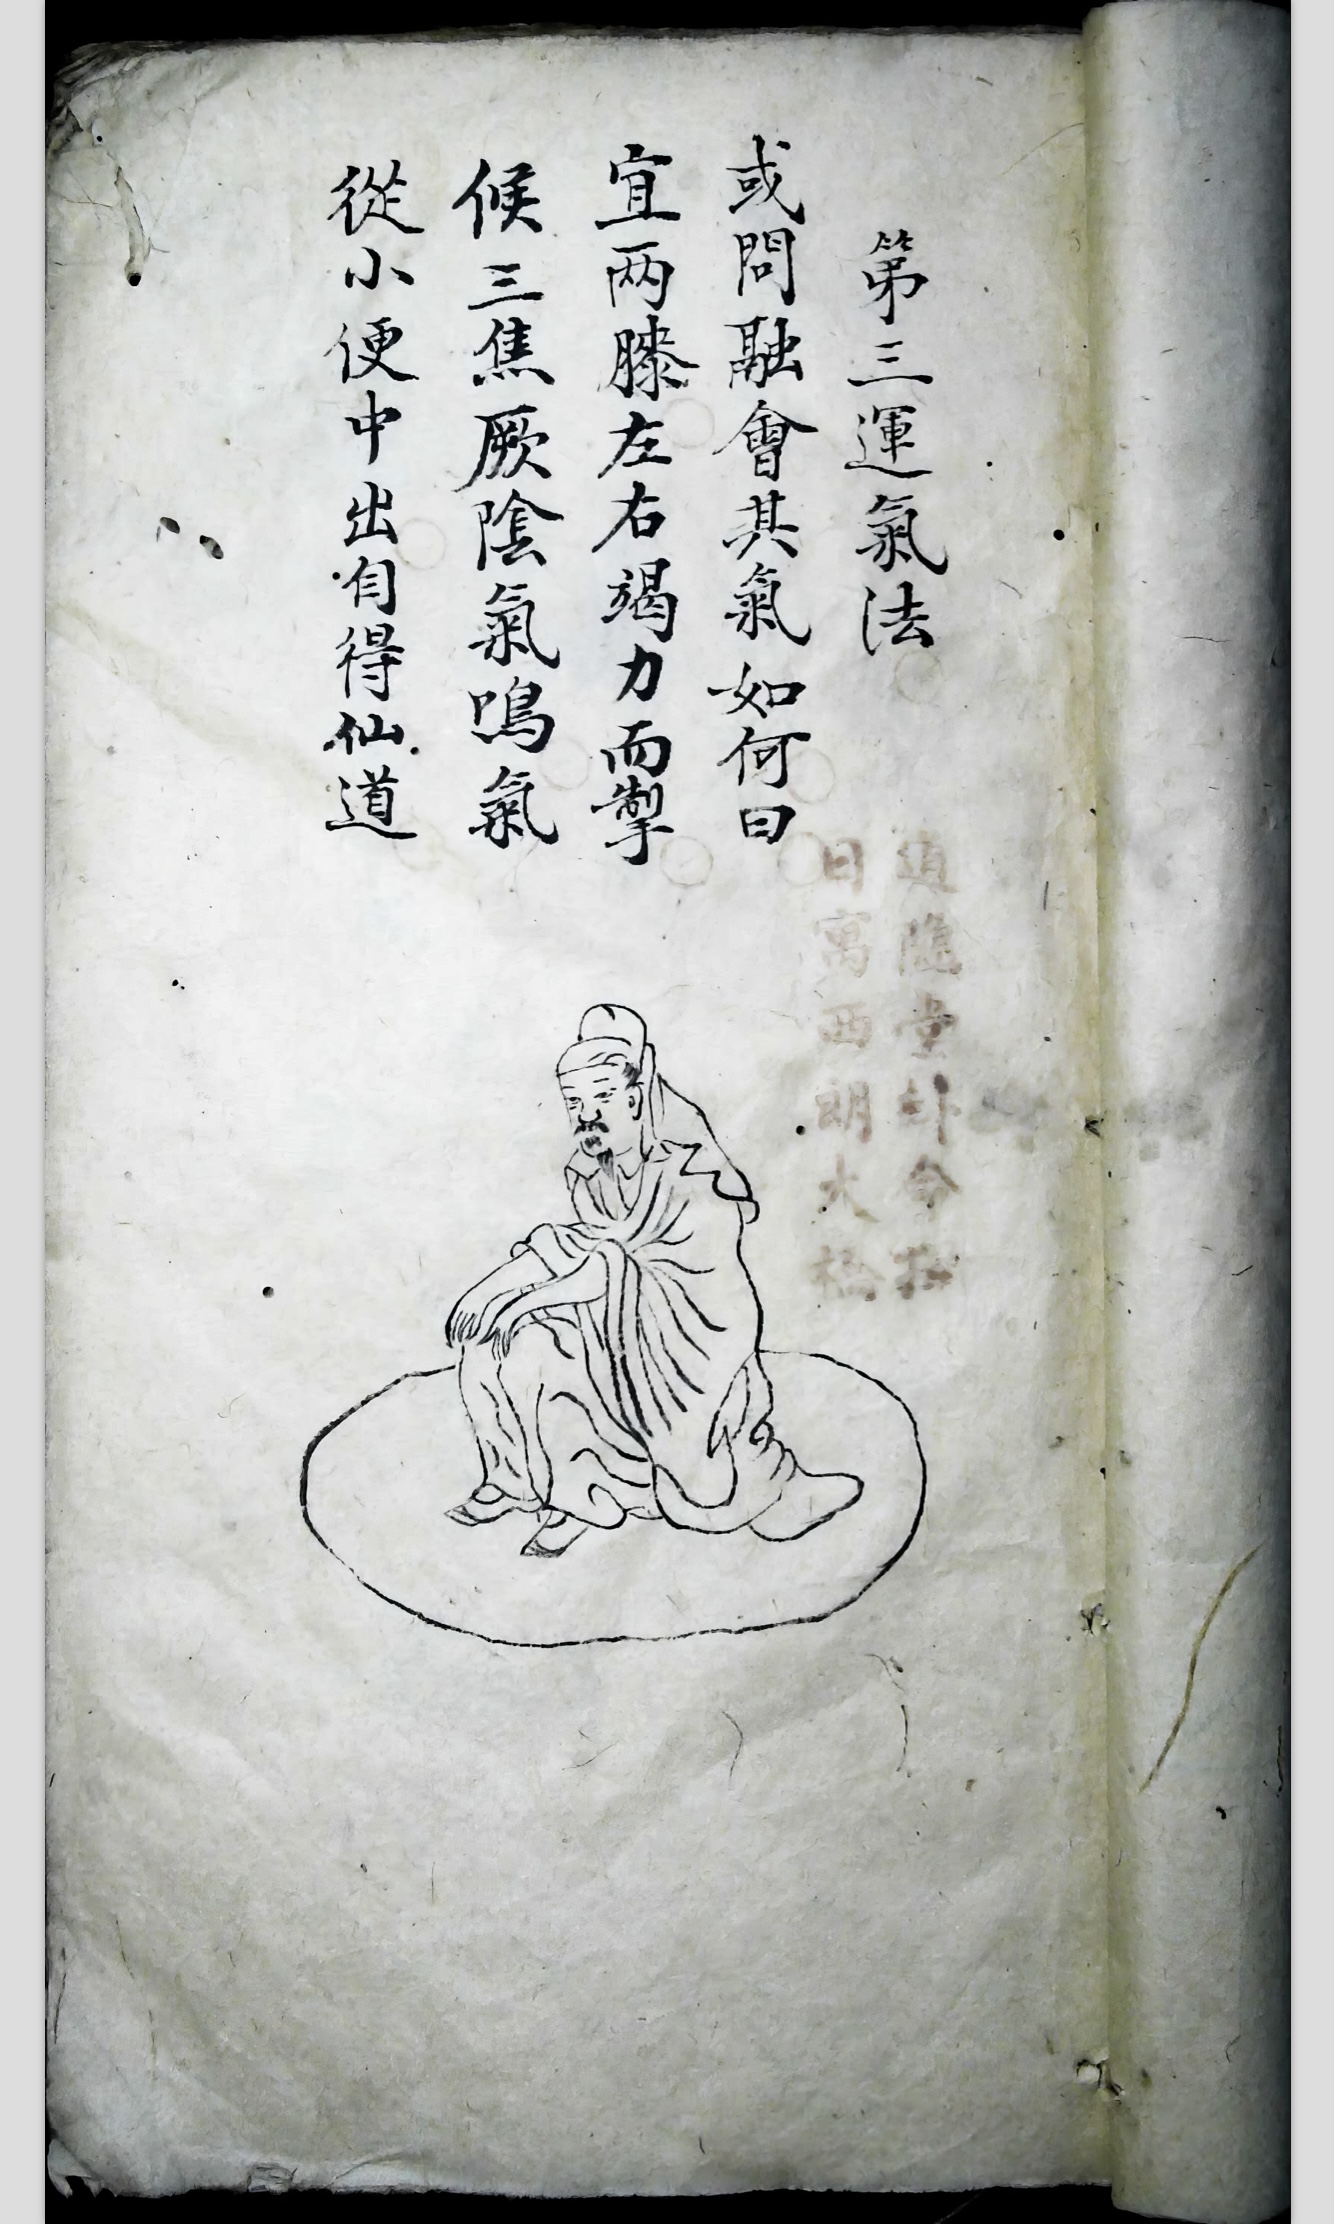 第三運氣法
或問融會其氣如何曰
宜两膝左右竭力而掣
候三焦厥陰氣鳴氣
從小便中出自得仙道
道隱堂卦命擇
日寓西明大橋